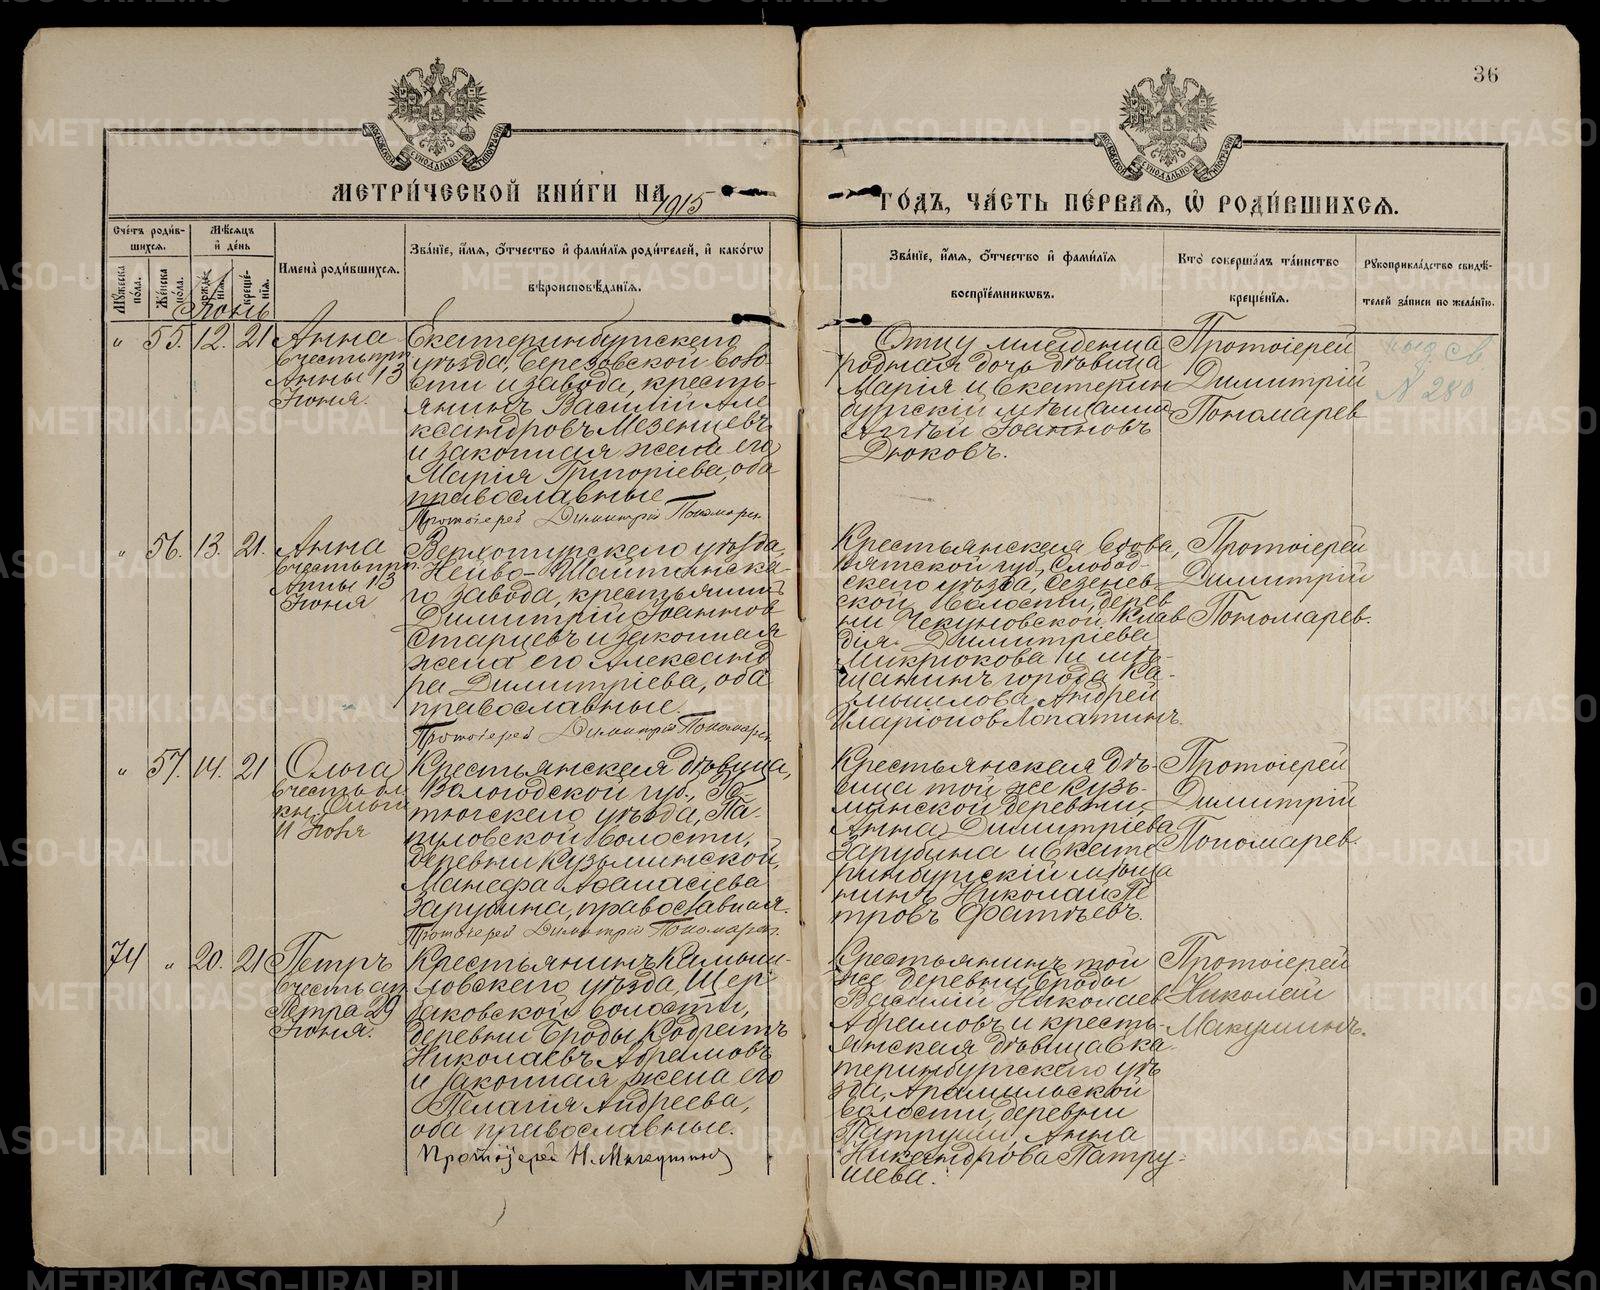 36
МОСКОВСКОЙ СѴНОДАЛЬНОЙ ТИПОГРАФІИ
МОСКОВСКОЙ СѴНОДАЛЬНОЙ ТИПОГРАФІИ
МЕТРИ́ЧЕСКОЙ КНИ́ГИ НА 1915 ГО́ДЪ, ЧА́СТЬ ПЕ́РВАЯ, Ѡ҆ РОДИ́ВШИХСЯ.
Сче́тъ роди́в-
шихся.
Мꙋ́жеска
по́ла.
Же́нска
по́ла.
Мѣ́сяцъ
и҆ де́нь
рожде́-
нія.
креще́-
нія.
Іюнь
Имена̀ роди́вшихся.
Зва́ніе, и҆́мя, ѻ҆́тчество и҆ фами́лія роди́телей, и҆ како́гѡ
вѣроисповѣ́данія.
Зва́ніе, и҆́мя, ѻ҆́тчество и҆ фами́лія
воспріе́мниковъ.
Кто̀ соверша́лъ та́инство
креще́нія.
Рꙋкоприкла́дство свидѣ́-
телей за́писи по жела́нію.
" 55. 12. 21
Анна
въ честь прп.
Анны 13
Іюня.
Екатеринбургскаго
уѣзда, Березовской воло-
сти и завода, кресть-
янинъ Василій Але
ксандровъ Мезенцевъ
и законная жена его
Марія Григоріева, оба
православные
Протоіерей Димитрій Пономарев
Отцу младенца
родная дочь дѣвица
Марія и Екатерин
бургскій мѣщанин
Іоанновъ
Дюковъ.
Протоіерей
Димитрій
Пономарев
выд. св.
№ 280
" 56. 13. 21.
Анна
въ честь прп.
Анны 13
Іюня
Верхотурскаго уѣзда,
Нейво-Шайтанска-
го завода, крестьянинъ
Димитрій Іоаннов
Старцевъ и законная
жена его Александ
ра Димитріева, оба
православные.
Протоіерей Димитрій Пономарев
Крестьянская вдова,
Вятской губ., Слобод-
скаго уѣзда,
ской волости, дерев
ни Чекуновской, Клав
дія Димитріева
Микрюкова и мѣ-
щанинъ города Ка-
мышлова, Андрей
Иларіонов Лопатинъ.
Протоіерей
Димитрій
Пономарев.
" 57. 14. 21
Ольга
въ честь бл.
кн. Ольги
11 Іюля
Крестьянская дѣвица,
Вологодской губ., Ус-
тюгскаго уѣзда, Па-
пуловской волости,
деревни Кузьминской,
Манефа Афанасіева
Зарубина, православная.
Протоіерей Димитрій Пономарев.
Крестьянская дѣ-
вица той же Кузь-
минской деревни,
Анна Димитріева
Зарубина и Екате
ринбургскій мѣща
нинъ Николай Пе
тровъ Фатѣевъ.
Протоіерей
Димитрій
Пономарев.
74 " 20. 21
Петръ
въ честь ап.
Петра 29
Іюня.
Крестьянинъ Камыш-
ловскаго уѣзда, Щер
баковской волости,
деревни Броды, Кодратъ
Николаевъ Абрамовъ
и законная жена его
Пелагія Андреева,
оба православные.
Протоіерей Н. Макушинъ
Крестьянинъ той
же деревни Броды
Василій Николаев
Абрамовъ и кресть-
янская дѣвица Ека
теринбургскаго уѣ
зда, Арамильской
волости, деревни
Патруши, Анна
Никандрова Патру-
шева.
Протоіерей
Николай
Макушинъ.
METRIKI.GASO-URAL.RU